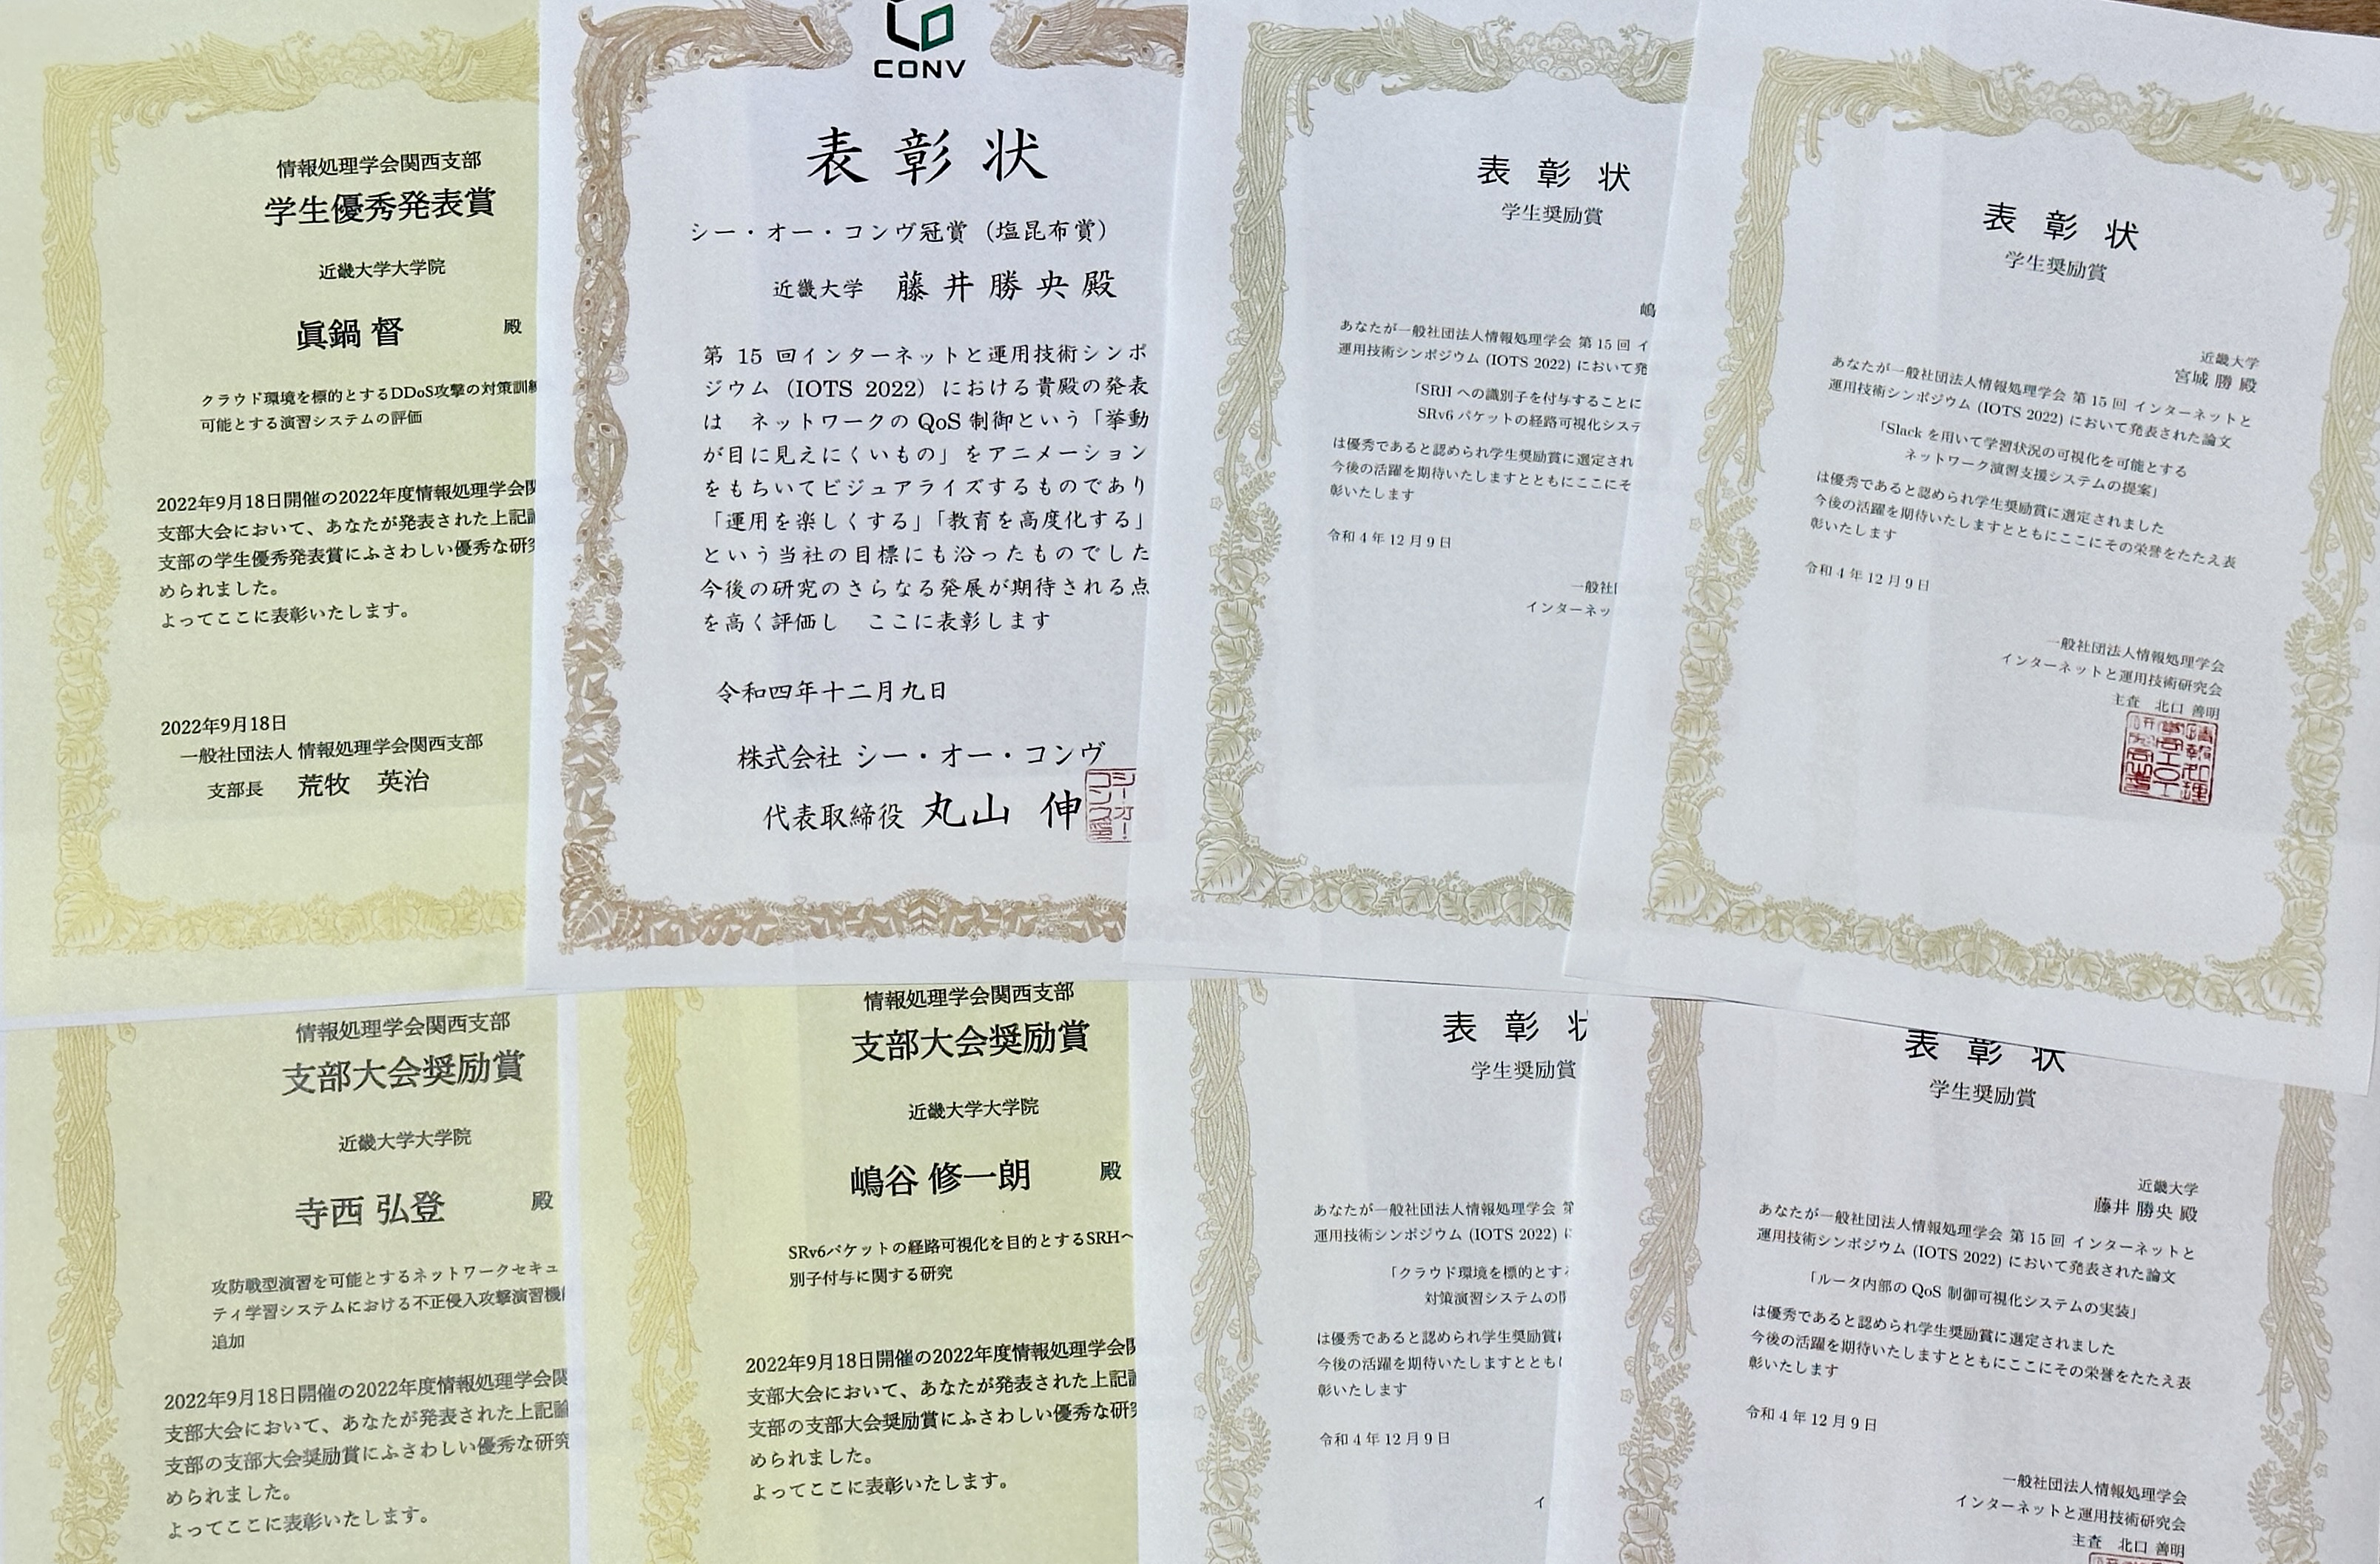 情報処理学会関西支部
学生優秀発表賞
近畿大学大学院
眞鍋 督 殿
クラウド環境を標的とするDDoS攻撃の対策訓練
可能とする演習システムの評価
2022年9月18日開催の2022年度情報処理学会関
支部大会において、あなたが発表された上記論
支部の学生優秀発表賞にふさわしい優秀な研究
められました。
よってここに表彰いたします。
2022年9月18日
一般社団法人 情報処理学会関西支部
支部長 荒牧 英治
CONV
表彰状
シー・オー・コンヴ冠賞（塩昆布賞）
近畿大学 藤井勝央殿
第 15 回インターネットと運用技術シンポ
ジウム（IOTS 2022）における貴殿の発表
は ネットワークの QoS 制御という「挙動
が目に見えにくいもの」をアニメーション
をもちいてビジュアライズするものであり
「運用を楽しくする」「教育を高度化する」
という当社の目標にも沿ったものでした
今後の研究のさらなる発展が期待される点
を高く評価し ここに表彰します
令和四年十二月九日
株式会社 シー・オー・コンヴ
代表取締役 丸山 伸
表彰状
学生奨励賞
嶋
あなたが一般社団法人情報処理学会 第 15 回 イ
運用技術シンポジウム (IOTS 2022) において発
「SRH への識別子を付与することに
SRv6 パケットの経路可視化システ
は優秀であると認められ学生奨励賞に選定され
今後の活躍を期待いたしますとともにここにそ
彰いたします
令和 4 年 12 月 9 日
一般社
インターネッ
表彰状
学生奨励賞
近畿大学
宮城 勝 殿
あなたが一般社団法人情報処理学会 第 15 回 インターネットと
運用技術シンポジウム (IOTS 2022) において発表された論文
「Slack を用いて学習状況の可視化を可能とする
ネットワーク演習支援システムの提案」
は優秀であると認められ学生奨励賞に選定されました
今後の活躍を期待いたしますとともにここにその栄誉をたたえ表
彰いたします
令和 4 年 12 月 9 日
一般社団法人情報処理学会
インターネットと運用技術研究会
主査 北口 善明
情報処理学会関西支部
支部大会奨励賞
近畿大学大学院
寺西 弘登 殿
攻防戦型演習を可能とするネットワークセキュ
ティ学習システムにおける不正侵入攻撃演習機
追加
2022年9月18日開催の2022年度情報処理学会関
支部大会において、あなたが発表された上記論
支部の支部大会奨励賞にふさわしい優秀な研究
められました。
よってここに表彰いたします。
情報処理学会関西支部
支部大会奨励賞
近畿大学大学院
嶋谷 修一朗 殿
SRv6パケットの経路可視化を目的とするSRHへ
別子付与に関する研究
2022年9月18日開催の2022年度情報処理学会関
支部大会において、あなたが発表された上記論
支部の支部大会奨励賞にふさわしい優秀な研究
められました。
よってここに表彰いたします。
表彰状
学生奨励賞
あなたが一般社団法人情報処理学会 第
運用技術シンポジウム (IOTS 2022) に
「クラウド環境を標的とする
対策演習システムの開
は優秀であると認められ学生奨励賞に
今後の活躍を期待いたしますとともに
彰いたします
令和 4 年 12 月 9 日
イ
表彰状
学生奨励賞
近畿大学
藤井 勝央 殿
あなたが一般社団法人情報処理学会 第 15 回 インターネットと
運用技術シンポジウム (IOTS 2022) において発表された論文
「ルータ内部の QoS 制御可視化システムの実装」
は優秀であると認められ学生奨励賞に選定されました
今後の活躍を期待いたしますとともにここにその栄誉をたたえ表
彰いたします
令和 4 年 12 月 9 日
一般社団法人情報処理学会
インターネットと運用技術研究会
主査 北口 善明